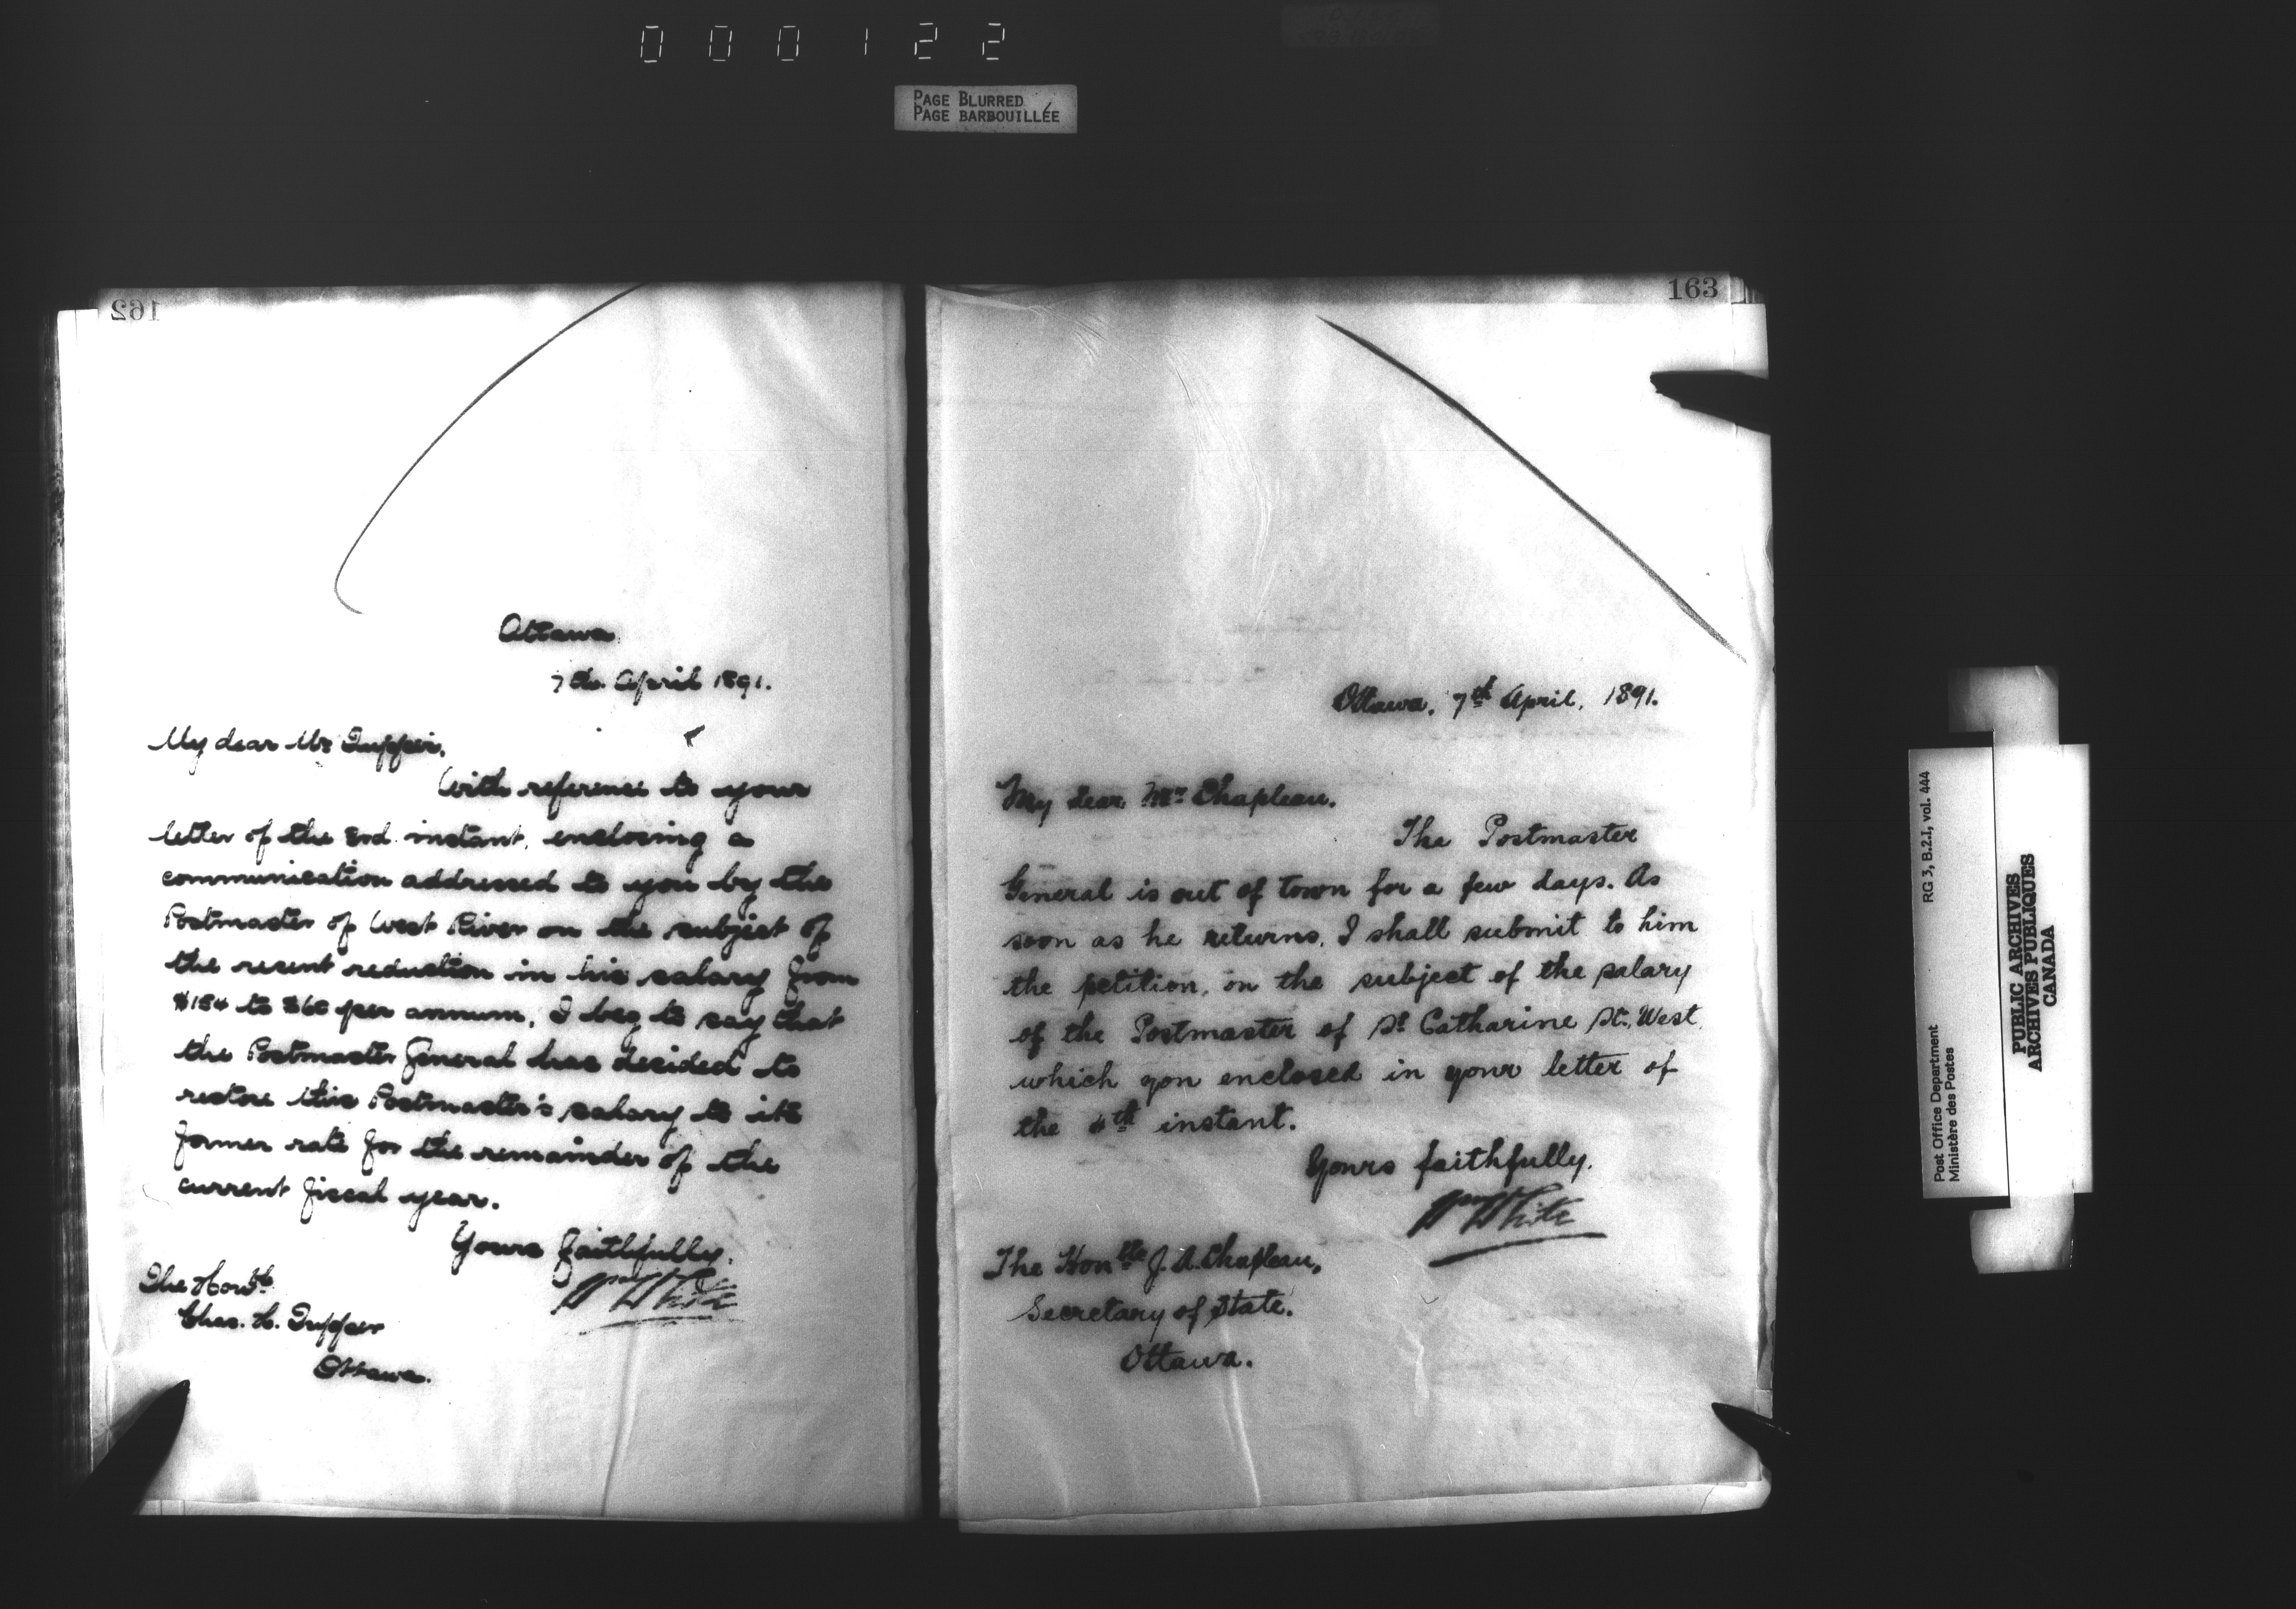 000122
PAGE BLURRED
PAGE BARBOUILLÉE
162
Ottawa
7th April 1891.
My dear Mr Tupper,
With reference to your
letter of the instant, enclosing a
communication addressed to you by the
Postmaster of West River on the subject of
the recent reduction in his salary from
to $60 per annum, I beg to say that
the Postmaster General has decided to
restore this Postmaster's salary to its
former rate for the remainder of the
current fiscal year.
Yours faithfully,
Wm White
The Honble
Chas. H. Tupper
Ottawa.
163
Ottawa, 7th April, 1891.
My dear Mr Chapleau,
The Postmaster
General is out of town for a few days. As
soon as he returns, I shall submit to him
the petition, on the subject of the salary
of the Postmaster of St Catharine St. West,
which you enclosed in your letter of
the 4th instant.
Yours faithfully,
Wm White
The Honble J. A. Chapleau,
Secretary of State.
Ottawa.
RG 3, B.2.1, vol. 444
Post Office Department
Ministère des Postes
PUBLIC ARCHIVES
ARCHIVES PUBLIQUES
CANADA